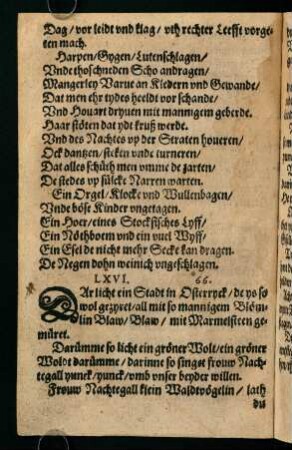 Dag / vor leidt vnd klag / vth rechter Leefft vorge⸗
ten mach.
Harpen / Gygen / Lutenschlagen /
Vnde thoschneden Scho andragen /
Mangerley Varue an Kledern vnd Gewande /
Dat men ehr tydes heeldt vor schande /
Vnd Houart dryuen mit mannigem geberde.
Haar flöten dat ydt kruß werde.
Vnd des Nachtes vp der Straten houeren /
Ock dantzen / steken vnde turneren /
Dat alles schüth men vmme de garten /
De stedes vp sülcke Narren warten.
Ein Orgel / Klocke vnd Wullenbagen /
Vnde böse Kinder vngetagen.
Ein Hoer / eines Stockfisches Lyff /
Ein Nöthboem vnd ein vuel Wyff /
Ein Esel de nicht mehr Secke kan dragen.
De Negen dohn weinich vngeschlagen.
LXVI. 66.
DAr licht ein Stadt in Osterryck / de ys so
wol gezyret / all mit so mannigem Blöm⸗
lin Blaw / Blaw / mit Marmelsteen ge⸗
müret.
Darümme so licht ein gröner Wolt / ein gröner
Woldt darümme / darinne so singet frouw Nach⸗
tegall yunck / yunck / vmb vnser beyder willen.
Frouw Nachtegall klein Waldtvögelin / lath
du